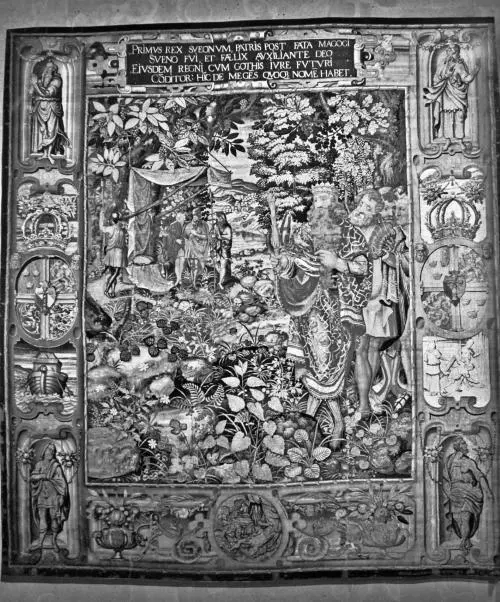 PRIMVS REX SVEONVM, PATRIS POST FATA MAGOGI
SVENO FVI, ET FÆLIX AVXILIANTE DEO
EIVSDEM REGNI CVM GOTHIS IVRE FVTVRI
CÕDITOR: HIC DE ME GES QVOQꝪ NOMĒ HABET.